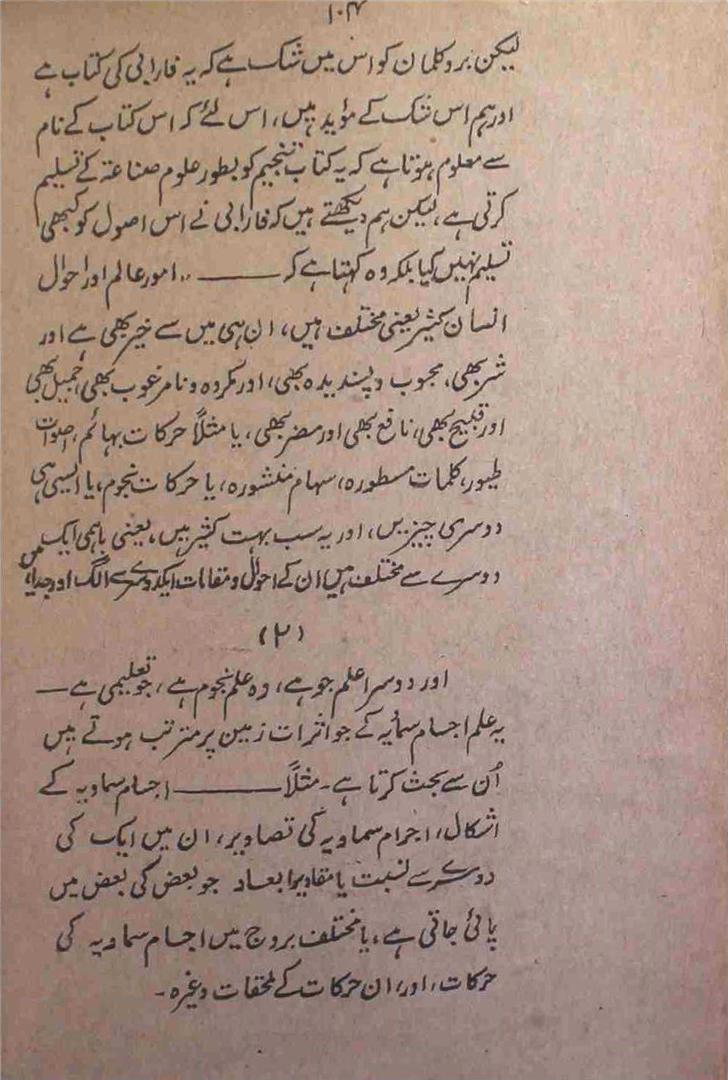 ۱۰۴
لیکن بروکلمان کو اس میں شک ہے کہ یہ فارابی کی کتاب ہے
اور ہم اس شک کے مؤید ہیں، اس لئے کہ اس کتاب کے نام
سے معلوم ہوتا ہے کہ یہ کتاب تنجیم کو بطور علوم صناعۃ کے تسلیم
کرتی ہے، لیکن ہم دیکھتے ہیں کہ فارابی نے اس اصول کو کبھی
تسلیم نہیں کیا بلکہ وہ کہتا ہے کہ ——— ،، امور عالم اور احوال
انسان کثیر یعنی مختلف ہیں، ان ہی میں سے خیر بھی ہے اور
شر بھی، محبوب و پسندیدہ بھی، اور مکروہ و نامرغوب بھی، جمیل بھی
اور قبیح بھی، نافع بھی اور مضر بھی، یا مثلاً حرکات بہائم، اصوات
طیور، کلمات مسطورہ، سہام منشورہ، یا حرکات نجوم، یا ایسی ہی
دوسری چیزیں، اور یہ سب بہت کثیر ہیں، یعنی باہمی ایک
دوسرے سے مختلف ہیں ان کے احوال و مقامات ایکدوسرے سے الگ اور جدا
(۲)
اور دوسرا علم جو ہے، وہ علم نجوم ہے، جو تعلیمی ہے —
یہ علم اجسام سمائیہ کے جو اثرات زمین پر مترتب ہوتے ہیں
اُن سے بحث کرتا ہے۔ مثلاً ——— اجسام سماویہ کے
اشکال، اجرام سماویہ کی تصاویر، ان میں ایک کی
دوسرے سے نسبت یا مقادیر ابعاد جو بعض کی بعض میں
پائی جاتی ہے، یا مختلف بروج میں اجسام سماویہ کی
حرکات، اور ان حرکات کے ملحقات وغیرہ۔